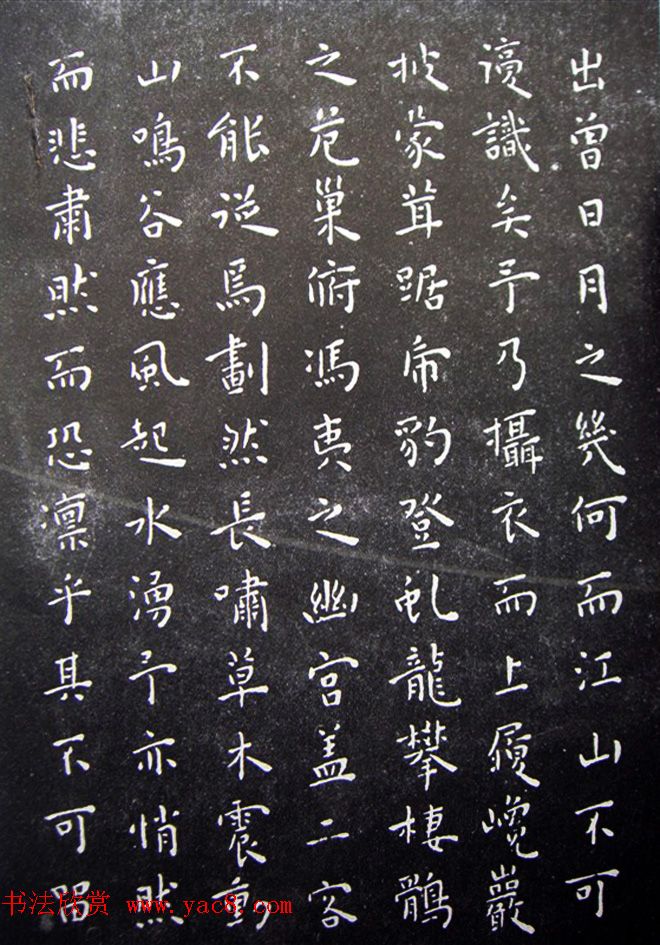 出曾日月之幾何而江山不可
復識矣予乃攝衣而上履巉巖
披蒙茸踞虎豹登虬龍攀棲鶻
之危巢俯馮夷之幽宮盖二客
不能從焉劃然長嘯草木震動
山鳴谷應風起水湧予亦悄然
而悲肅然而恐凛乎其不可留
书法欣赏 www.yac8.com